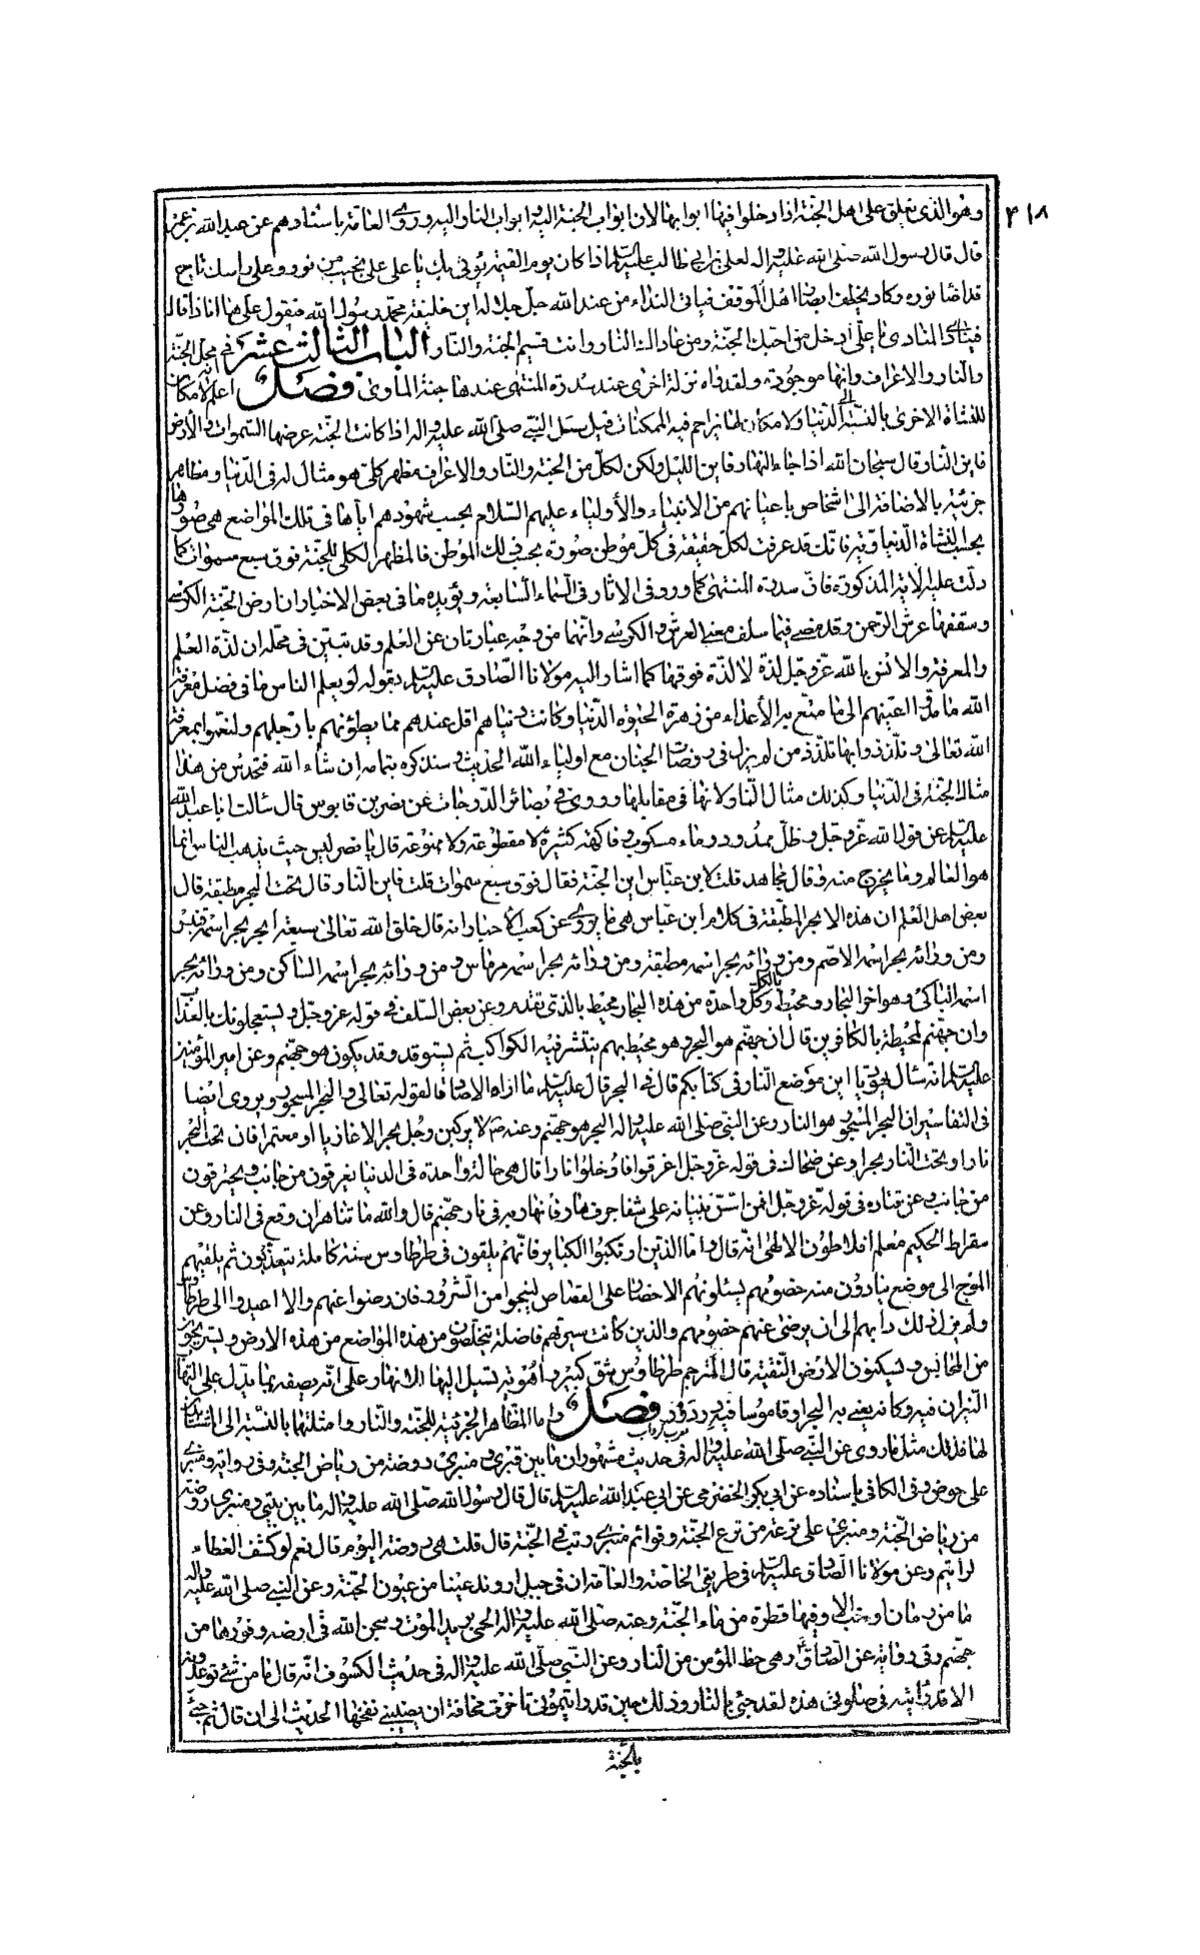 ٣١٨
وهو الذى يغلق على اهل الجنة اذا دخلوا فيها ابوابها لان ابواب الجنة اليه وابواب النار اليه وروى العامة باسنادهم عن عبد الله بن عمر
قال قال رسول الله صلى الله عليه واله لعلى بن ابى طالب عليه السلم اذا كان يوم القيمة يؤتى بك يا على على نجيب من نور وعلى راسك تاج
قد اضاء نوره وكاد يخطف ابصار اهل الموقف فياتى النداء من عند الله جل جلاله اين خليفة محمد رسول الله فيقول على ها انا ذا قال
فينادى المنادى يا على ادخل من احبك الجنة ومن عاداك النار وانت قسيم الجنة والنار الباب الثالث عشر فى محل الجنة
والنار والاعراف وانها موجودة ولقد راه نزلة اخرى عند سدرة المنتهى عندها جنة الماوى فصل اعلم انه لا مكان
للنشاة الاخرى بالنسبة الى الدنيا ولا مكان لها يزاحم فيه الممكنات قيل سئل النبى صلى الله عليه واله اذا كانت الجنة عرضها السموات والارض
فاين النار قال سبحان الله اذا جاء النهار فاين الليل ولكن لكل من الجنة والنار والاعراف مظهر كلى هو مثال له فى الدنيا ومظاهر
جزئية بالاضافة الى اشخاص باعيانهم من الانبياء والأولياء عليهم السلام بحسب شهودهم اياها فى تلك المواضع هى صورها
بحسب النشاة الدنياوية فانك قد عرفت لكل حقيقة فى كل موطن صورة بحسب ذلك الموطن فالمظهر الكلى للجنة فوق سبع سموات كما
دلت عليه الاية المذكورة فان سدرة المنتهى كما ورد فى الاثار فى السماء السابعة ويؤيده ما فى بعض الاخبار ان ارض الجنة الكرسى
وسقفها عرش الرحمن وقد مضى فيما سلف معنى العرش والكرسى وانهما من وجه عبارتان عن العلم وقد تبين فى محله ان لذة العلم
والمعرفة والانس بالله عز وجل لذة لا لذة فوقها كما اشار اليه مولانا الصادق عليه السلم بقوله لو يعلم الناس ما فى فضل معرفة
الله ما مدوا اعينهم الى ما متع به الأعداء من زهرة الحيوة الدنيا وكانت دنياهم اقل عندهم مما يطؤنه بارجلهم ولنعموا بمعرفة
الله تعالى وتلذذوا بها تلذذ من لم يزل فى روضات الجنان مع اولياء الله الحديث وسنذكره بتمامه ان شاء الله فتحدس من هذا
مثال الجنة فى الدنيا وكذلك مثال النار لانها فى مقابلها وروى فى بصائر الدرجات عن نضر بن قابوس قال سالت ابا عبد الله
عليه السلم عن قول الله عز وجل وظل ممدود وماء مسكوب وفاكهة كثيرة لا مقطوعة ولا ممنوعة قال يا نضر ليس حيث يذهب الناس انما
هو العالم وما يخرج منه وقال مجاهد قلت لابن عباس اين الجنة فقال فوق سبع سموات قلت فاين النار قال تحت البحر مطبقة قال
بعض اهل العلم ان هذه الابحر المطبقة فى كلام ابن عباس هى ما يروى عن كعب الأحبار انه قال خلق الله تعالى سبعة ابحر بحر اسمه
ومن ورائه بحر اسمه الاصم ومن ورائه بحر اسمه مطبقة ومن ورائه بحر اسمه مرماس ومن ورائه بحر اسمه الساكن ومن ورائه بحر
اسمه الباكى وهو اخر البحار ومحيط بالكل وكل واحدة من هذه البحار محيط بالذى تقدمه وعن بعض السلف فى قوله عز وجل ويستعجلونك بالعذاب
وان جهنم لمحيطة بالكافرين قال ان جهنم هو البحر وهو محيط بهم ينتشر فيه الكواكب ثم يستوقد وقد يكون هو جهنم وعن امير المؤمنين
عليه السلم انه سال يهوديا اين موضع النار فى كتابكم قال فى البحر قال عليه السلم ما اراه الا صادقا لقوله تعالى والبحر المسجور ويروى ايضا
فى التفاسير ان البحر المسجور هو النار وعن النبى صلى الله عليه واله البحر هو جهنم وعنه ص لا يركبن رجل بحر الا غازيا او معتمرا فان تحت البحر
نارا وتحت النار بحرا وعن ضحاك فى قوله عز وجل اغرقوا فادخلوا نارا قال هى حالة واحدة فى الدنيا يغرقون من جانب ويحترقون
من جانب وعن قتاده فى قوله عز وجل افمن اسس بنيانه على شفا جرف هار فانهار به فى نار جهنم قال والله ما تناهى ان وقع فى النار وعن
سقراط الحكيم معلم افلاطون الالهى انه قال واما الذين ارتكبوا الكباير فانهم يلقون فى طرطاوس سنة كاملة يتعذبون ثم يلقيهم
الموج الى موضع ينادون منه خصومهم يسئلونهم الاحضار على القصاص لينجوا من الشرور فان رضوا عنهم والا اعيدوا الى طرطاوس
ولم يزل ذلك دابهم الى ان يرضى عنهم خصومهم والذين كانت سيرتهم فاضلة يتخلصون من هذه المواضع من هذه الارض ويستريحون
من المحابس ويسكنون الارض النقية قال المترجم طرطاوس شق كبير واهوية تسيل اليها الانهار على انه يصفه بما يدل على التهاب
النيران فيه وكانه يعنى به البحر او قاموسا فيه دردور فصل واما المظاهر الجزئية للجنة والنار وامثلتهما بالنسبة الى
لها فذلك مثل ما روى عن النبى صلى الله عليه واله فى حديث مشهور ان ما بين قبرى ومنبرى روضة من رياض الجنة وفى رواية ومنبرى
على حوضى وفى الكافى باسناده عن ابى بكر الحضرمى عن ابى عبد الله عليه السلم قال قال رسول الله صلى الله عليه واله ما بين بيتى ومنبرى روضة
من رياض الجنة ومنبرى على ترعة من ترع الجنة وقوائم منبرى رتب فى الجنة قال قلت هى روضة اليوم قال نعم لو كشف الغطاء
لرايتم وعن مولانا الصادق عليه السلم فى طريقى الخاصة والعامة ان فى جبل اروند عينا من عيون الجنة وعن النبى صلى الله عليه واله
ما من رمان او حب الا وفيها قطرة من ماء الجنة وعنه صلى الله عليه واله الحمى بريد الموت وسجن الله فى ارضه وفورها من
جهنم وفى رواية عن الصادق وهى حظ المؤمن من النار وعن النبى صلى الله عليه واله فى حديث الكسوف انه قال ما من شئ توعدونه
الا قد رايته فى صلوتى هذه لقد جئ بالنار وذلك حين قد رايتمونى تاخرت مخافة ان يصيبنى نفخها الحديث الى ان قال ثم جئ
بالجنة